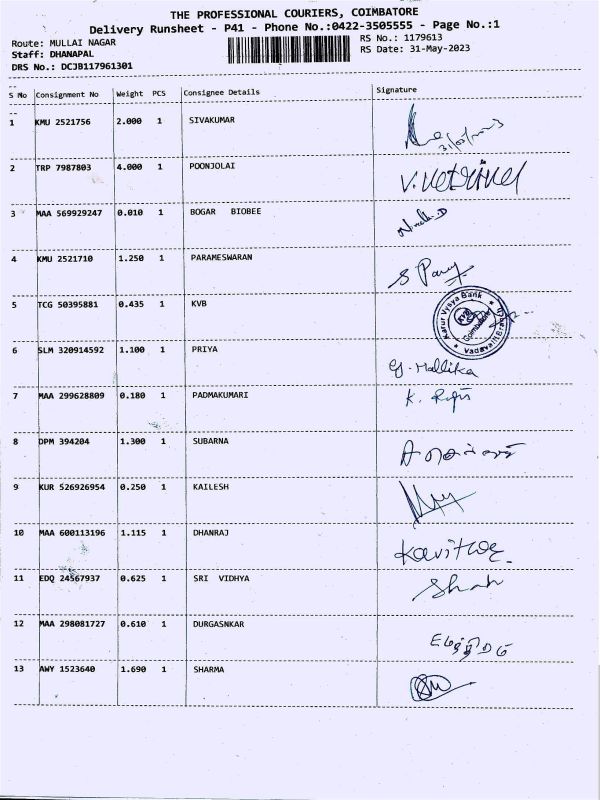 THE PROFESSIONAL COURIERS, COIMBATORE
Delivery Runsheet - P41 - Phone No.:0422-3505555 - Page No.:1
Route: MULLAI NAGAR RS No.: 1179613
Staff: DHANAPAL RS Date: 31-May-2023
DRS No.: DCJB117961301
S No Consignment No Weight PCS Consignee Details Signature
1 KMU 2521756 2.000 1 SIVAKUMAR
2 TRP 7987803 4.000 1 POONJOLAI
3 MAA 569929247 0.010 1 BOGAR BIOBEE
4 KMU 2521710 1.250 1 PARAMESWARAN
5 TCG 50395881 0.435 1 KVB Karur Vysya Bank KVB Coimbatore
6 SLM 320914592 1.100 1 PRIYA G. Mallika
7 MAA 299628809 0.180 1 PADMAKUMARI
8 DPM 394204 1.300 1 SUBARNA
9 KUR 526926954 0.250 1 KAILESH
10 MAA 600113196 1.115 1 DHANRAJ
11 EDQ 24567937 0.625 1 SRI VIDHYA Shah
12 MAA 298081727 0.610 1 DURGASNKAR
13 AWY 1523640 1.690 1 SHARMA